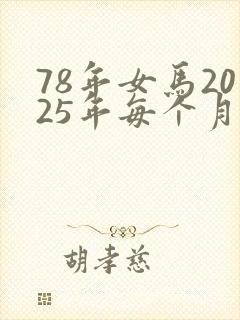 78年女馬20
25年每个月
胡孝慈